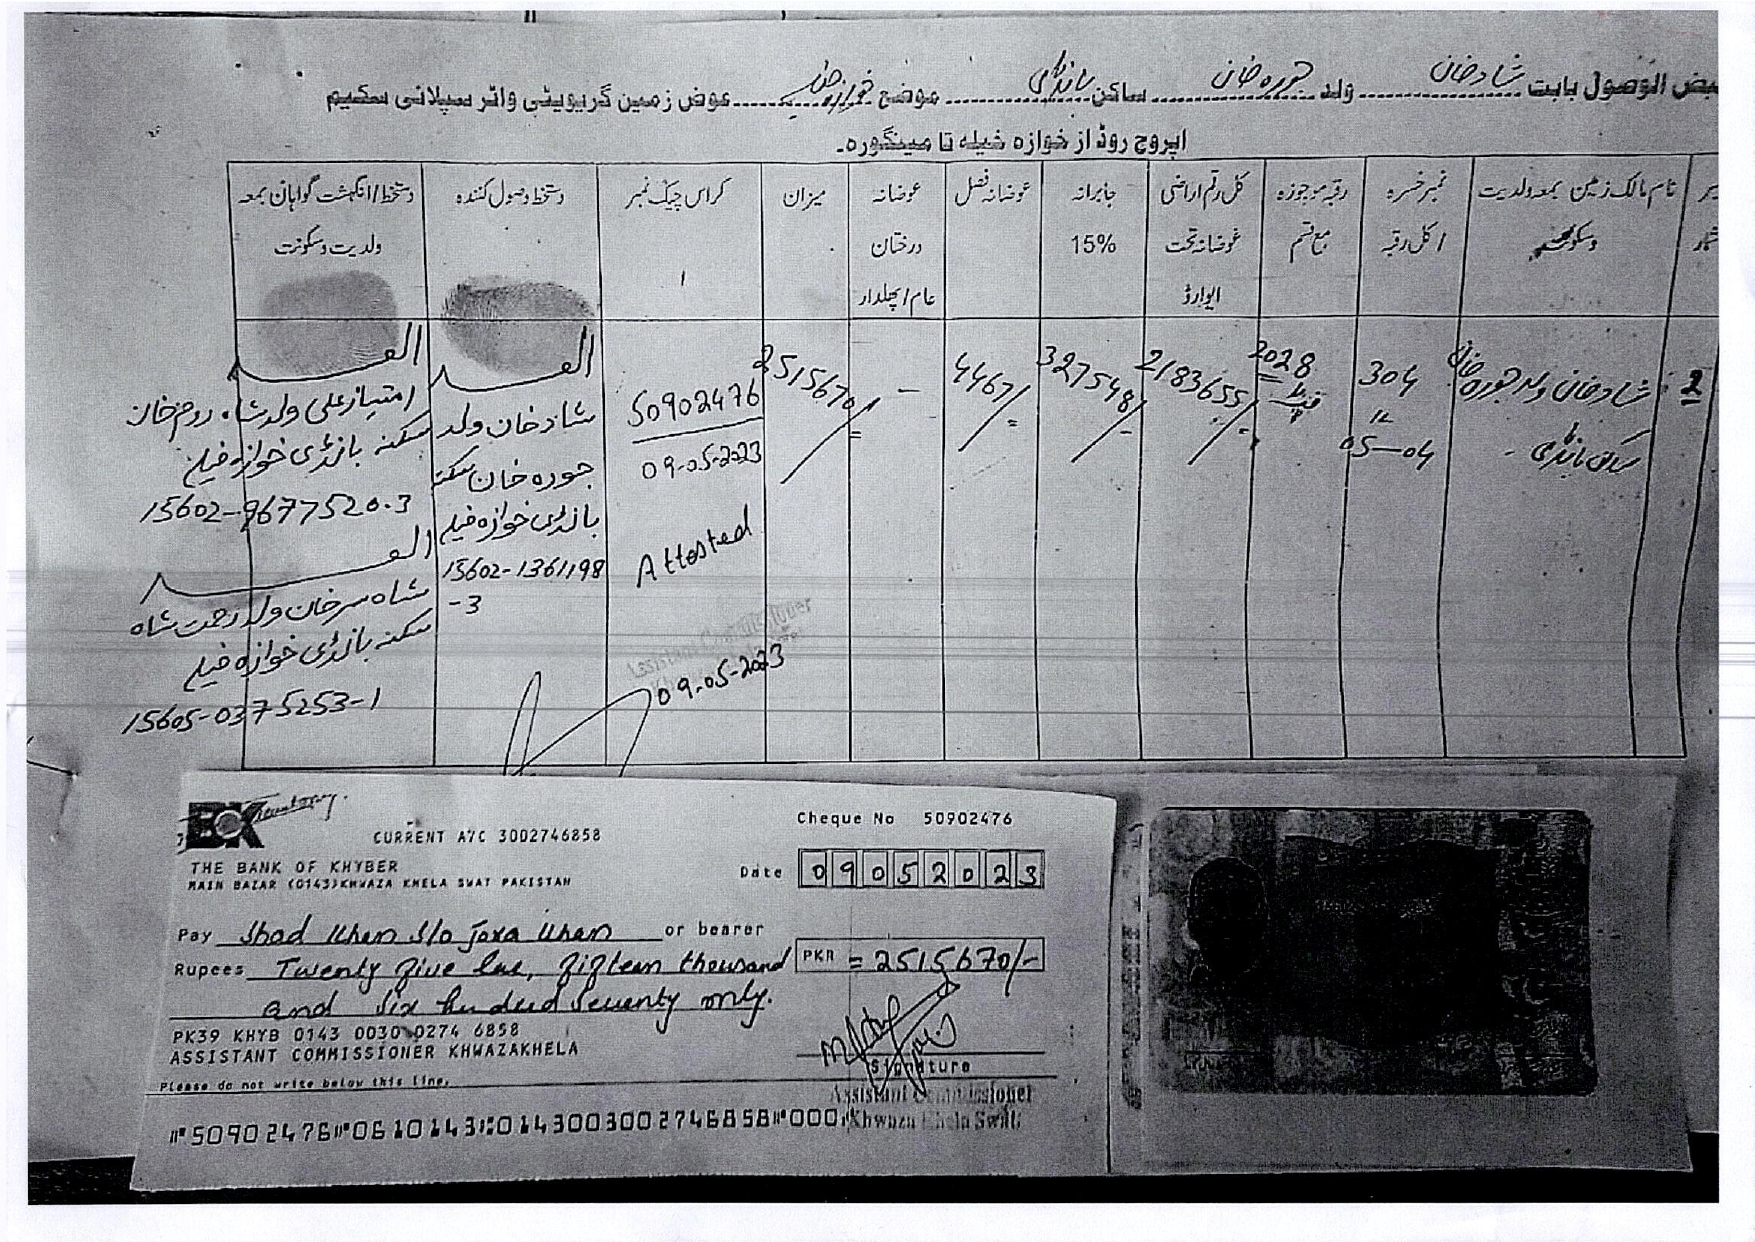 قبض الوصول بابت شاد خان ولد جوره خان ساکن بانڈئی موضع خوازہ خیلہ عوض زمین گریویٹی واٹر سپلائی سکیم
اپروچ روڈ از خوازہ خیلہ تا مینگورہ۔
نام مالک زمین بمعہ ولدیت
نمبر خسرہ / کل رقبہ
رقبہ موجوزہ مع قسم
کل رقم اراضی عوضانہ تحت ایوارڈ
جابرانہ 15%
عوضانہ فصل
عوضانہ درختان عام / پھلدار
میزان
کراس چیک نمبر
دستخط وصول کنندہ
دستخط / انگشت گواہان بمعہ ولدیت و سکونت
2
شاد خان ولد جوره خان
ساکن بانڈئی
304
05-04
2028
2183655/-
327548/-
4467/=
-
2515670/=
50902476
09-05-2023
Attested
Assistant Commissioner
09-05-2023
العبد
شاد خان ولد
جوره خان سکنہ
بانڈئی خوازہ خیلہ
15602-1361198
-3
العبد
امتیاز علی ولد شاہ روم خان
سکنہ بانڈئی خوازہ خیلہ
15602-9677520-3
العبد
شاہ سر خان ولد رحمت شاہ
سکنہ بانڈئی خوازہ خیلہ
15605-0375253-1
BOK
CURRENT A/C 3002746858
Cheque No 50902476
THE BANK OF KHYBER
MAIN BAZAR (0143)KHWAZA KHELA SWAT PAKISTAN
Date 09052023
Pay Shad Khan S/o Jora Khan or bearer
Rupees Twenty five lac, fifteen thousand
PKR =2515670/-
and six hundred seventy only.
PK39 KHYB 0143 0030 0274 6858
ASSISTANT COMMISSIONER KHWAZAKHELA
Signature
Please do not write below this line.
Assistant Commissioner
Khwaza Khela Swat
⑈50902476⑈0610143⑆0143003002746858⑈000